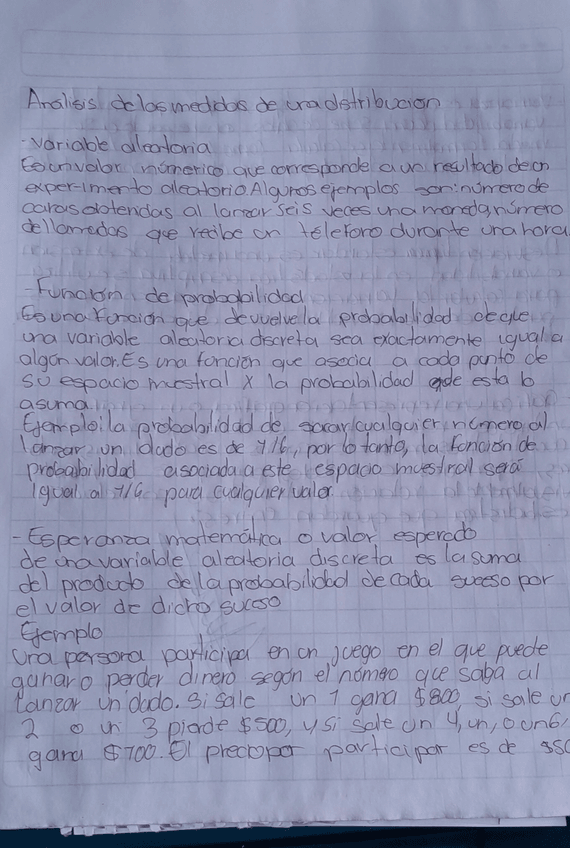 Analisis de las medidas de una distribucion
- variable aleatoria
Es un valor númerico que corresponde a un resultado de un
experimento aleatorio Algunos ejemplos son: número de
caras obtenidas al lanzar seis veces una moneda, número
de llamadas que recibe un télefono durante una hora
- Función de probabilidad
Es una función que devuelve la probabilidad de que
una variable aleatoria discreta sea exactamente igual a
algún valor. Es una función que asocia a cada punto de
su espacio muestral X la probabilidad de esta lo
asuma
Ejemplo: la probabilidad de sacar cualquier número al
lanzar un dado es de 1/6, por lo tanto, la función de
probabilidad asociada a este espacio muestral será
Igual al 1/6 para cualquier valor
- Esperanza matemática o valor esperado
de una variable aleatoria discreta es la suma
del producto de la probabilidad de cada suceso por
el valor de dicho suceso
Ejemplo
Una persona participa en un juego en el que puede
ganar o perder dinero según el número que salga al
lanzar un dado. Si sale un 1 gana $800, si sale un
2 o un 3 pierde $500, y si sale un 4, un, o un 6,
gana $700. El precio por participar es de